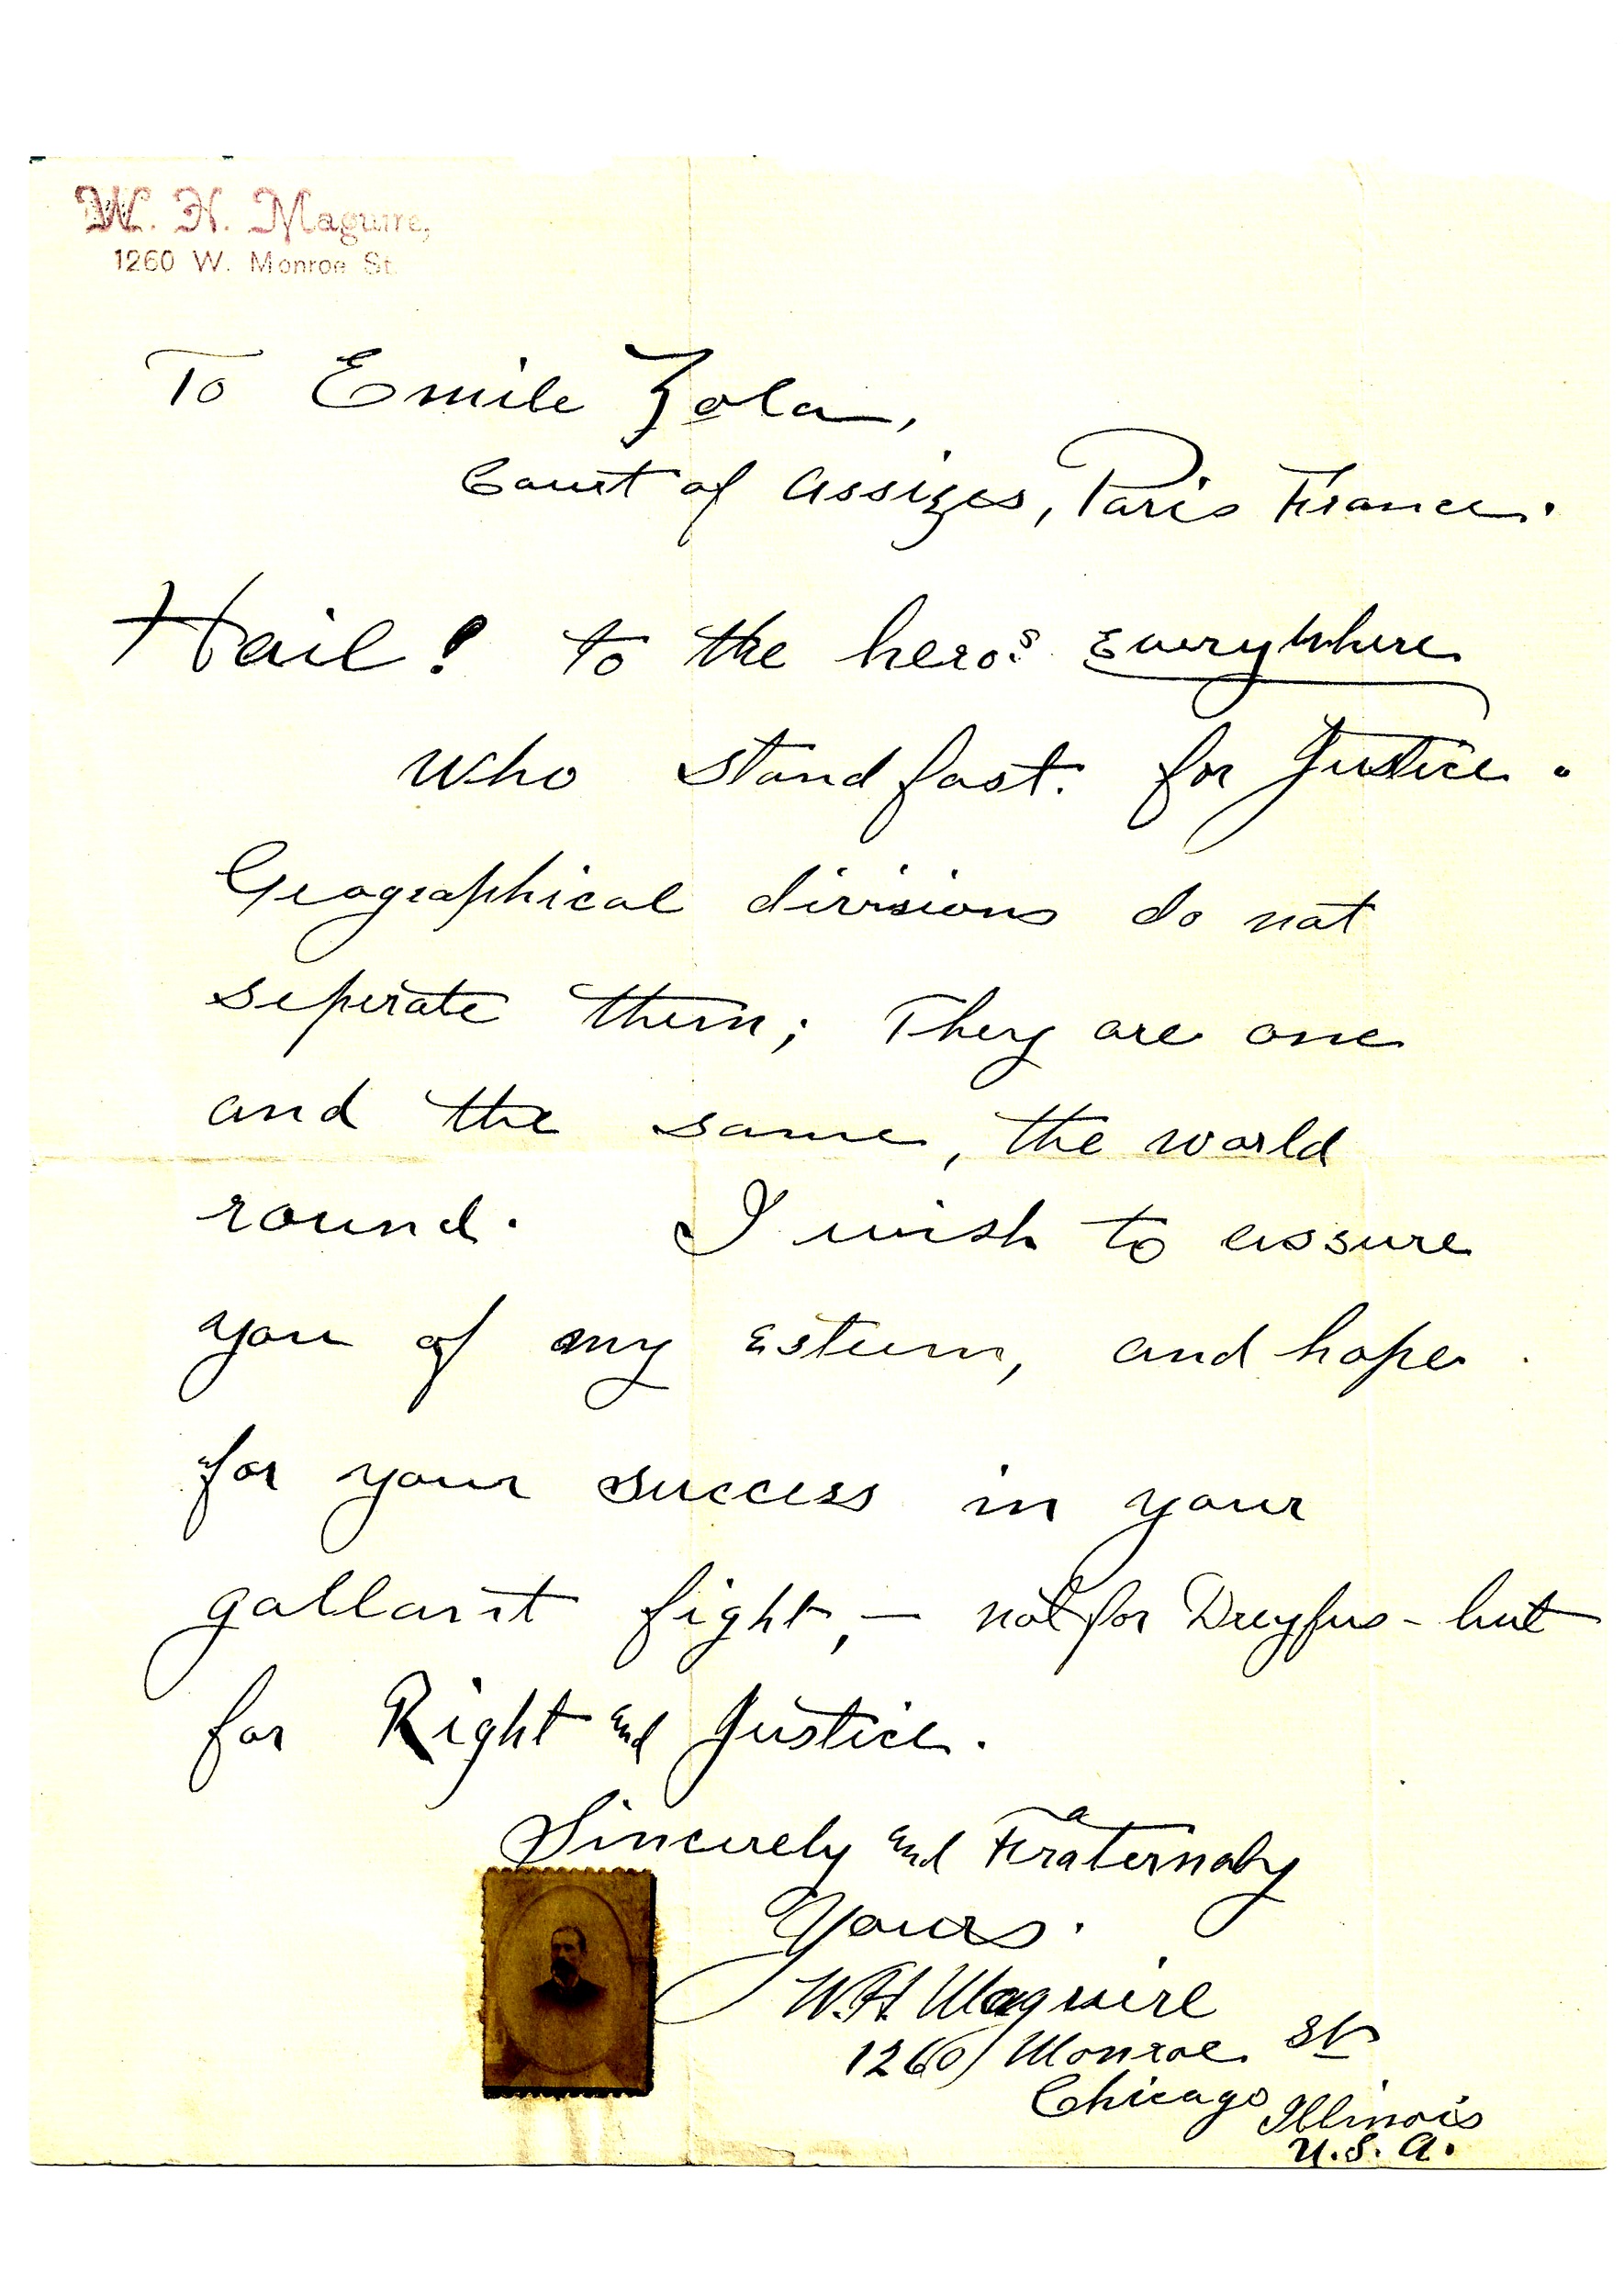 W. H. Maguire,
1260 W. Monroe St.
To Emile Zola,
Court of Assizes, Paris France.
Hail! to the heros Everywhere
who stand fast. for Justice.
Geographical divisions do not
seperate them; They are one
and the same, the world
round. I wish to assure
you of my esteem, and hope
for your success in your
gallant fight, — not for Dreyfus – but
for Right and Justice.
Sincerely and Fraternaly
Yours.
W. H. Maguire
1260 Monroe St
Chicago Illinois
U. S. A.